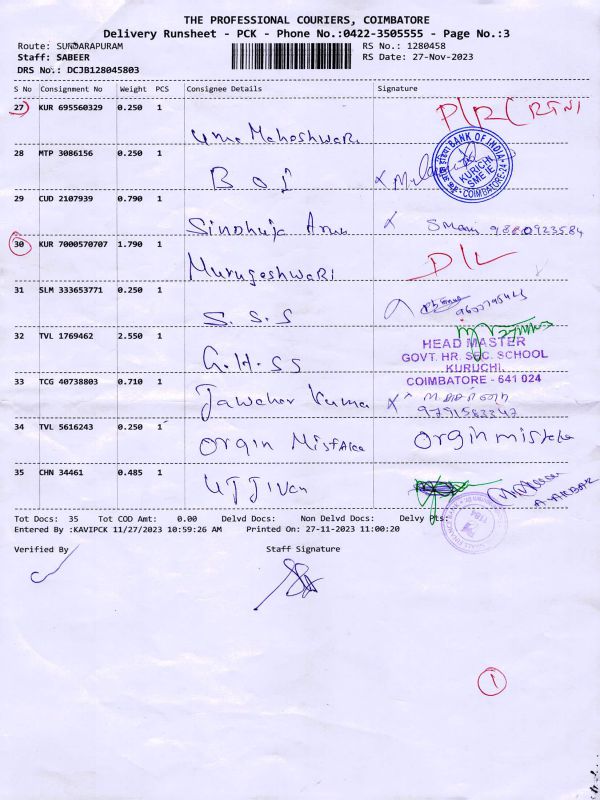 THE PROFESSIONAL COURIERS, COIMBATORE
Delivery Runsheet - PCK - Phone No.:0422-3505555 - Page No.:3
Route: SUNDARAPURAM
RS No.: 1280458
Staff: SABEER
RS Date: 27-Nov-2023
DRS No.: DCJB128045803
S No Consignment No Weight PCS Consignee Details Signature
27 KUR 695560329 0.250 1 Uma Maheshwari
28 MTP 3086156 0.250 1 BOI
BANK OF INDIA
KURICHI
SME IE
COIMBATORE-24
29 CUD 2107939 0.790 1 Sindhuja
30 KUR 7000570707 1.790 1 MurugeshwaRi D/L
31 SLM 333653771 0.250 1 S.S.S
32 TVL 1769462 2.550 1 G.H.SS
HEAD MASTER
GOVT. HR. SEC. SCHOOL
KURUCHI,
COIMBATORE - 641 024
33 TCG 40738803 0.710 1 Jawahar Kumar
9791583342
34 TVL 5616243 0.250 1 Orgin Mistake Orgin mistake
35 CHN 34461 0.485 1 UJJIVan
A. AKBAR
Tot Docs: 35 Tot COD Amt: 0.00 Delvd Docs: Non Delvd Docs: Delvy Pts:
Entered By :KAVIPCK 11/27/2023 10:59:26 AM Printed On: 27-11-2023 11:00:20
Verified By Staff Signature
1